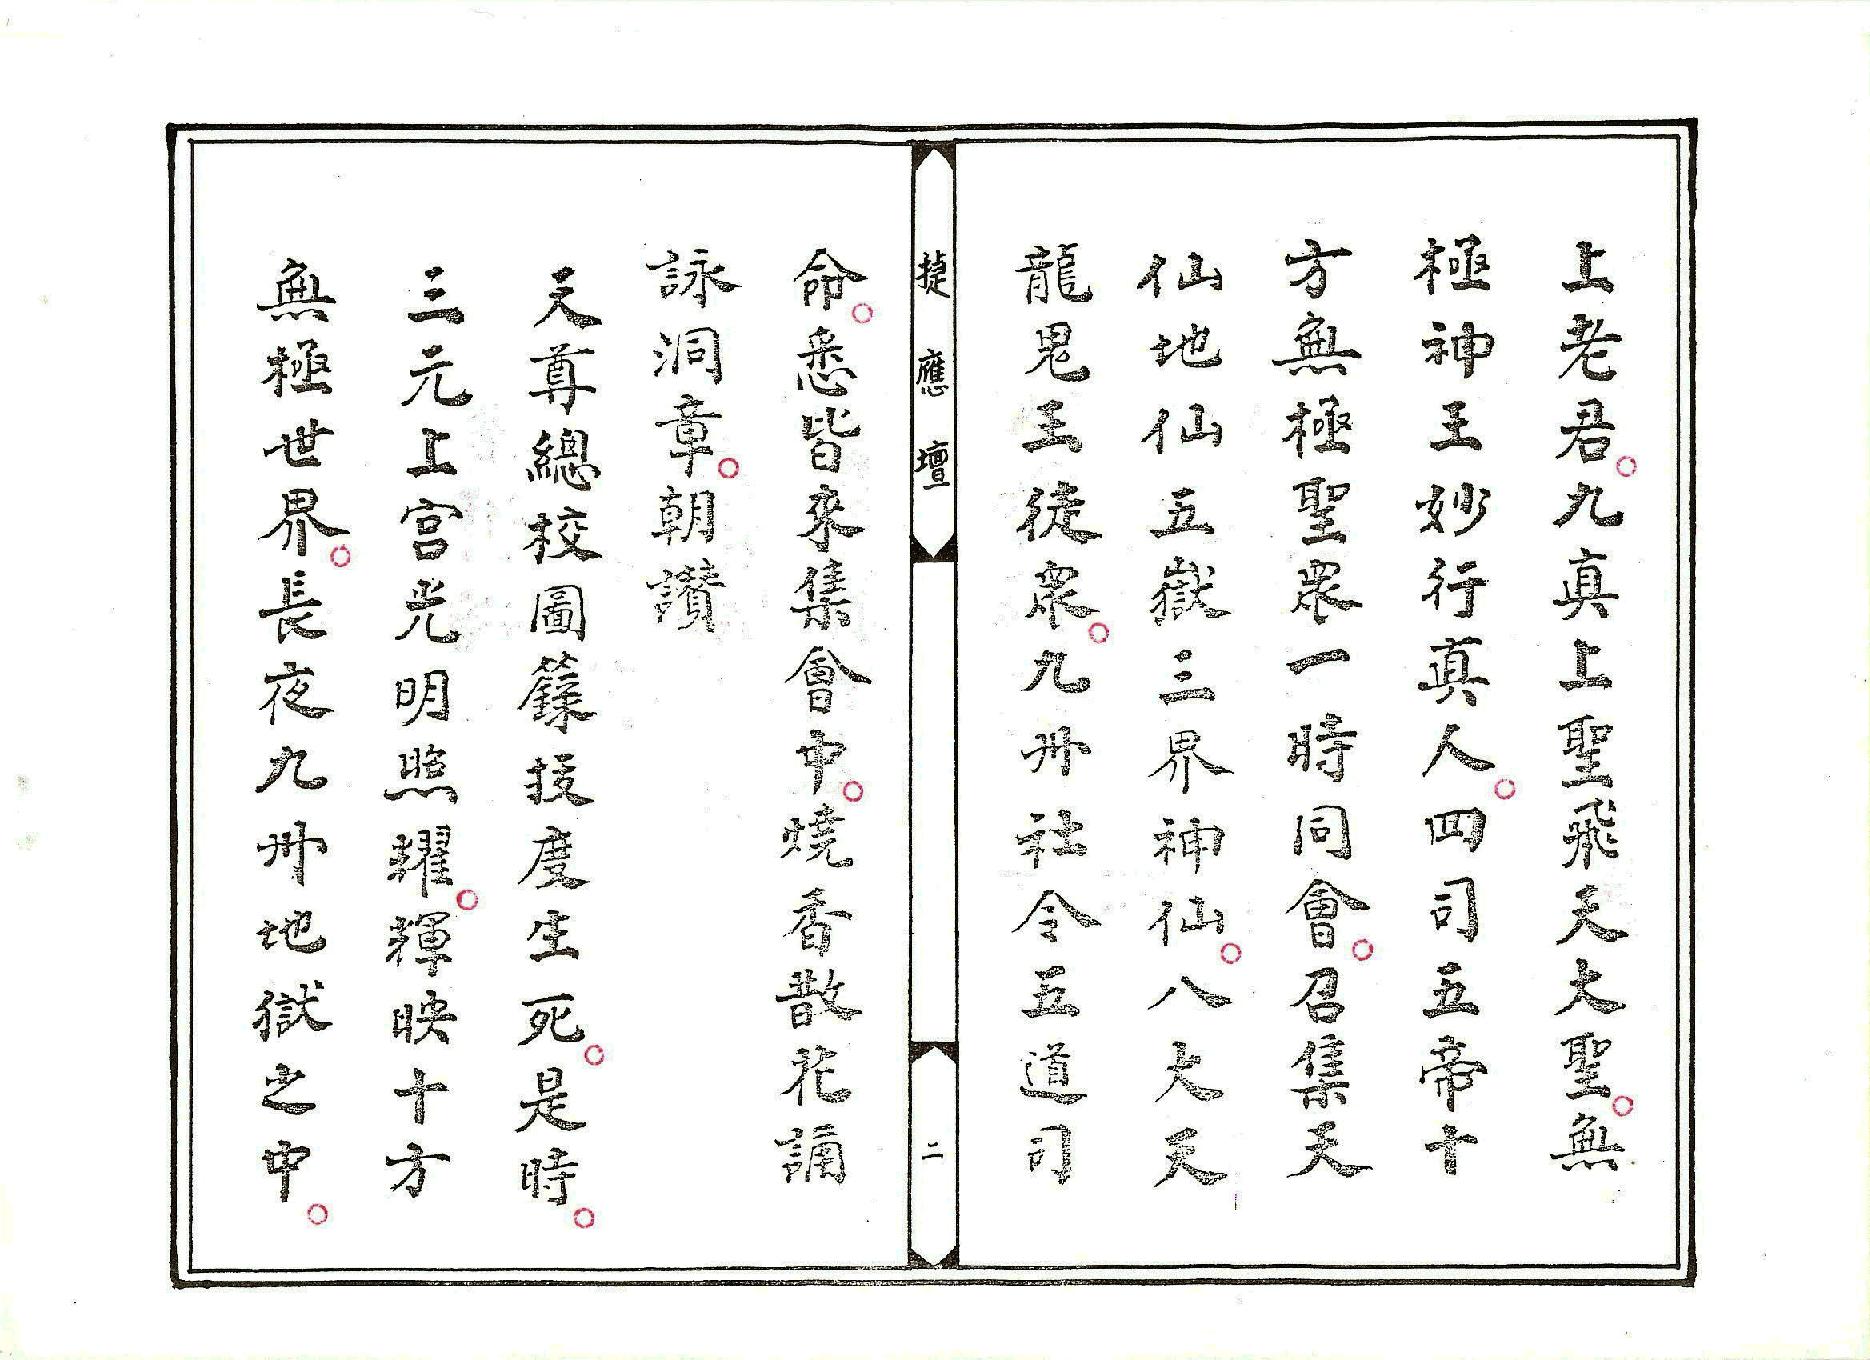 上老君。九真上聖飛天大聖。無
極神王妙行真人。四司五帝十
方無極聖眾一時同會。召集天
仙地仙五嶽三界神仙。八大天
龍鬼王徒眾。九州社令五道司
捷應壇
二
命。悉皆來集會中。燒香散花誦
詠洞章。朝讚
天尊總校圖籙拔度生死。是時。
三元上宮光明照耀。輝映十方
無極世界。長夜九州地獄之中。